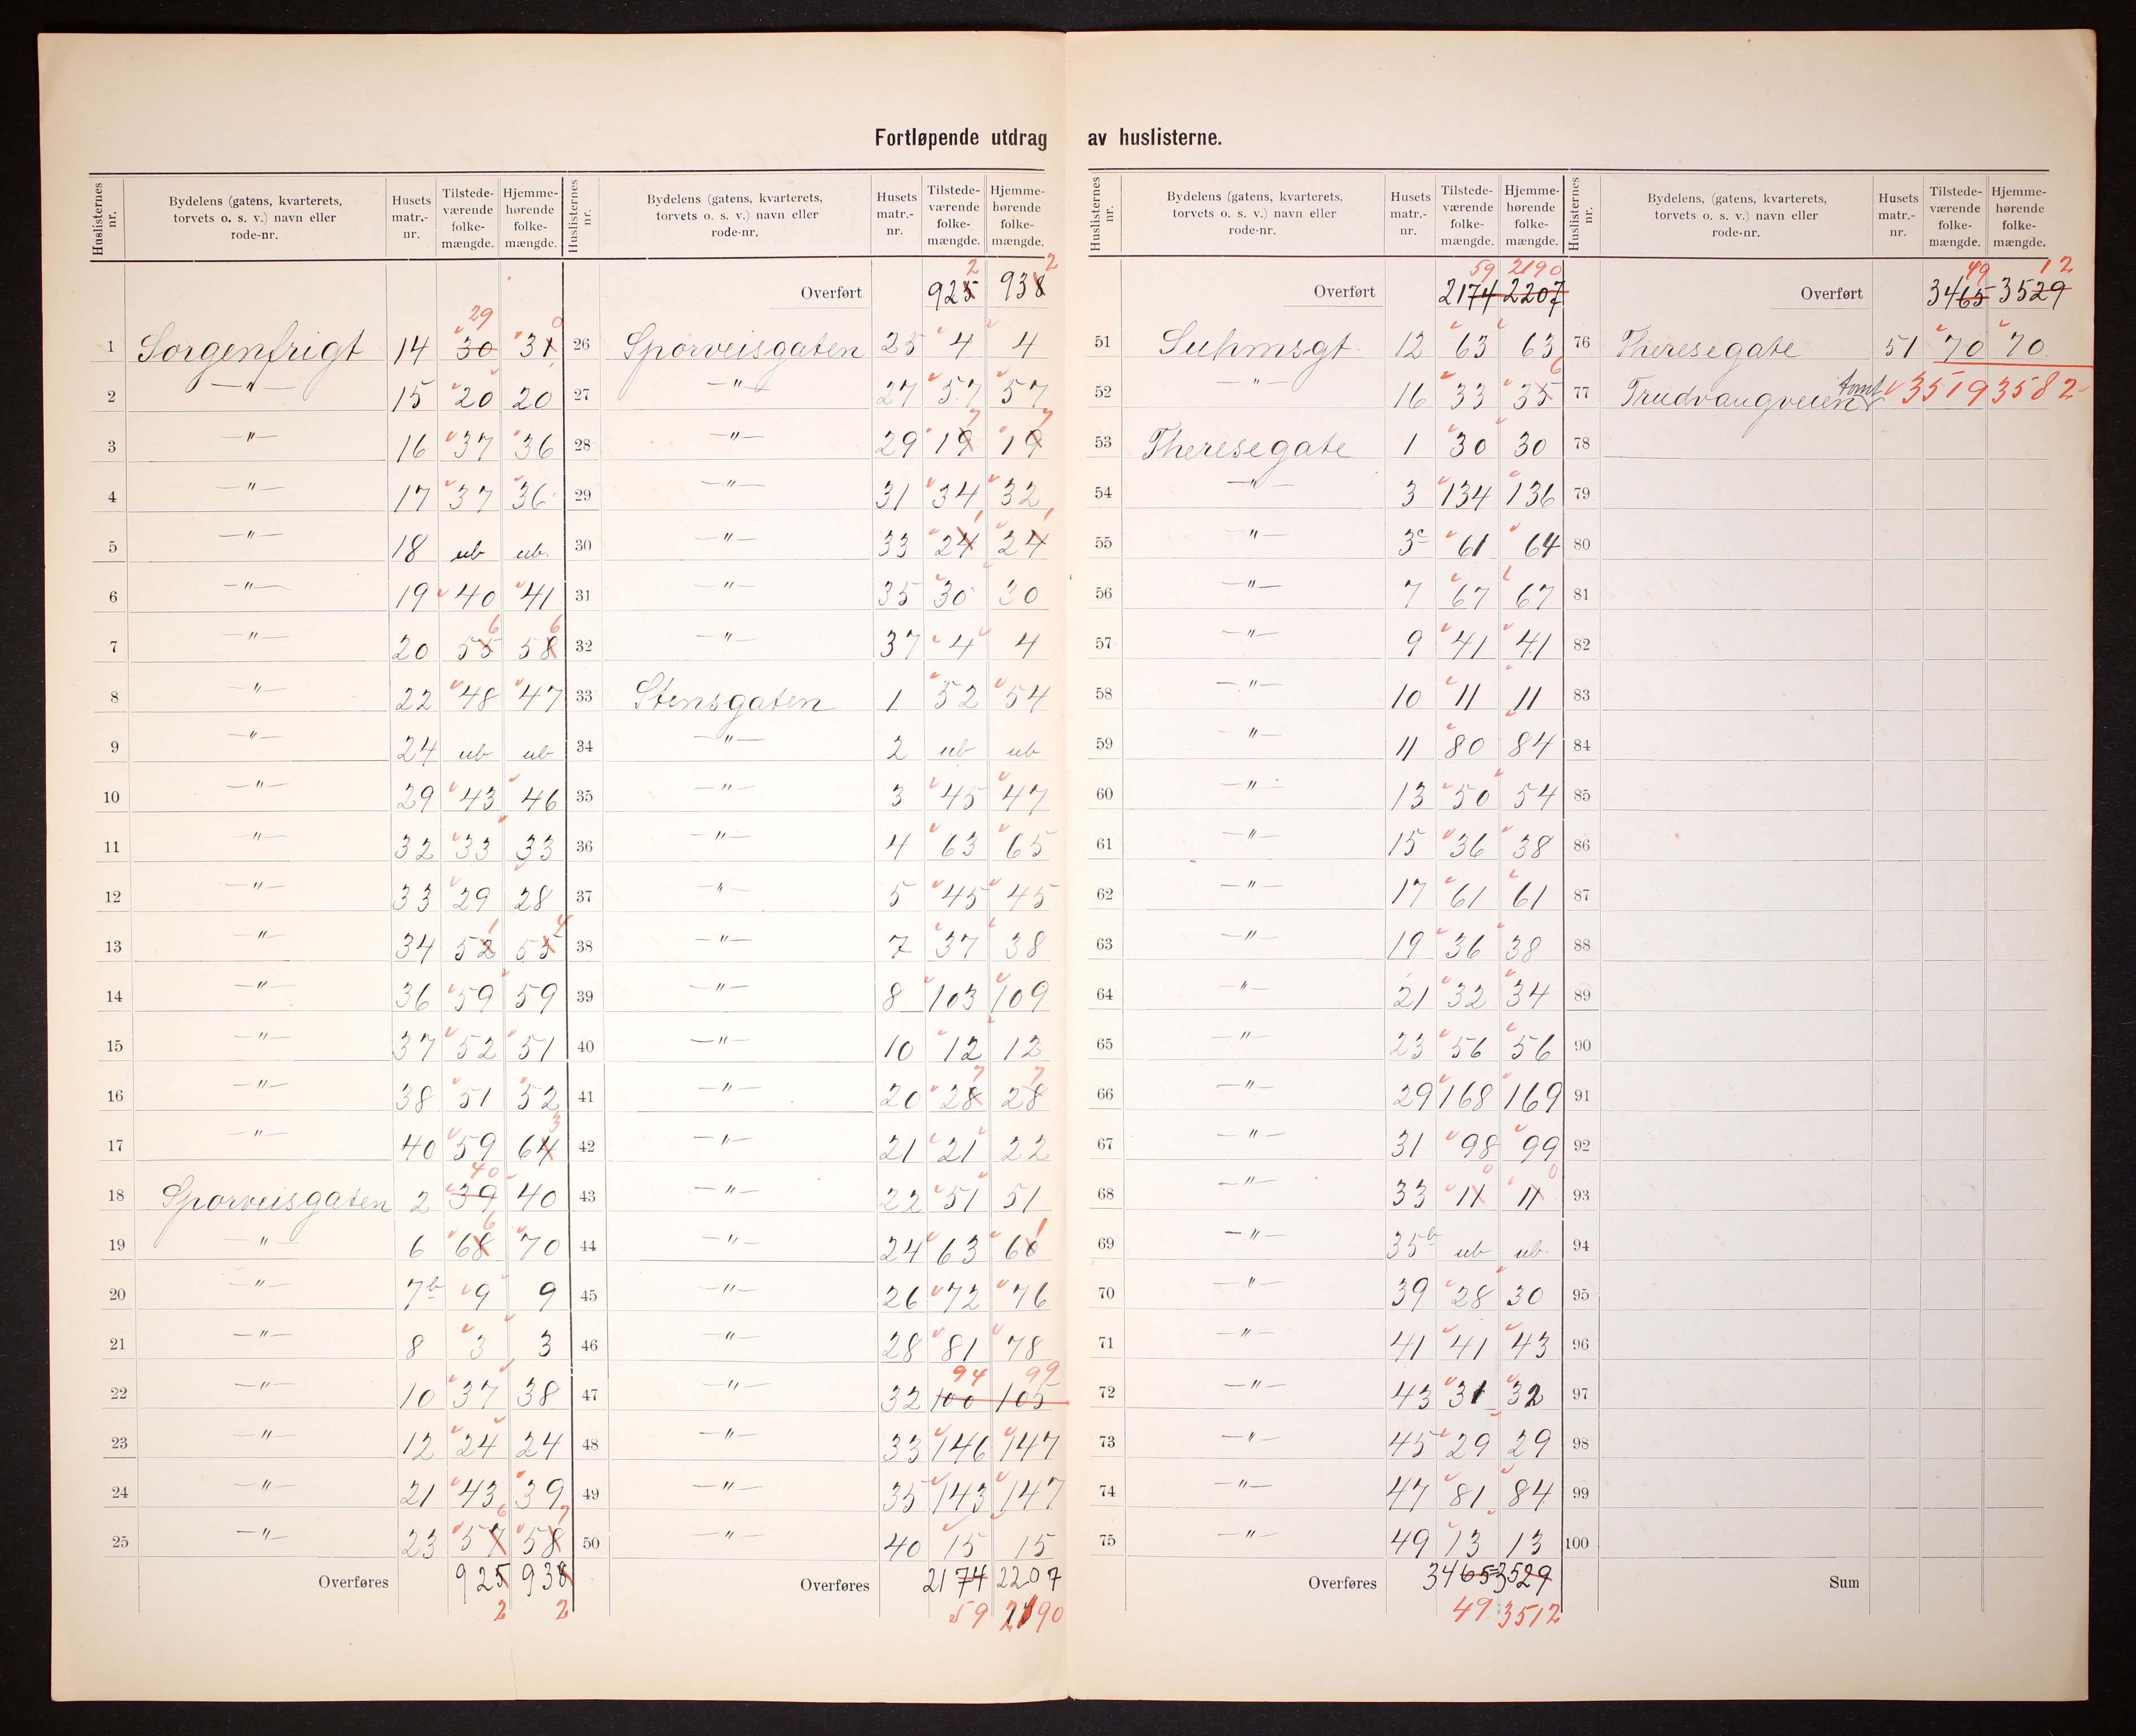 Fortløpende utdrag av huslisterne.
Huslisternes nr. | Bydelens (gatens, kvarterets, torvets o. s. v.) navn eller rode-nr. | Husets matr.-nr. | Tilstede-værende folke-mængde. | Hjemme-hørende folke-mængde.
1 Sorgenfrigt 14 30 29 31 0
2 —"— 15 20 20
3 —"— 16 37 36
4 —"— 17 37 36
5 —"— 18 ub ub.
6 —"— 19 40 41
7 —"— 20 55 6 58 6
8 —"— 22 48 47
9 —"— 24 ub ub
10 —"— 29 43 46
11 —"— 32 33 33
12 —"— 33 29 28
13 —"— 34 52 1 55 4
14 —"— 36 59 59
15 —"— 37 52 51
16 —"— 38 51 52
17 —"— 40 59 64 3
18 Sporveisgaten 2 39 40 40
19 —"— 6 68 6 70
20 —"— 7b 9 9
21 —"— 8 3 3
22 —"— 10 37 38
23 —"— 12 24 24
24 —"— 21 43 39
25 —"— 23 57 6 58 7
Overføres 925 938
2 2
Huslisternes nr. | Bydelens (gatens, kvarterets, torvets o. s. v.) navn eller rode-nr. | Husets matr.-nr. | Tilstede-værende folke-mængde. | Hjemme-hørende folke-mængde.
2 2
Overført 925 938
26 Sporveisgaten 25 4 4
27 —"— 27 57 57
28 —"— 29 19 7 19 7
29 —"— 31 34 32
30 —"— 33 24 1 24 1
31 —"— 35 30 30
32 —"— 37 4 4
33 Stensgaten 1 52 54
34 —"— 2 ub ub
35 —"— 3 45 47
36 —"— 4 63 65
37 —"— 5 45 45
38 —"— 7 37 38
39 —"— 8 103 109
40 —"— 10 12 12
41 —"— 20 28 7 28 7
42 —"— 21 21 22
43 —"— 22 51 51
44 —"— 24 63 60 1
45 —"— 26 72 76
46 —"— 28 81 78
47 —"— 32 100 94 105 99
48 —"— 33 146 147
49 —"— 35 143 147
50 —"— 40 15 15
Overføres 2174 2207
59 2190
Huslisternes nr. | Bydelens (gatens, kvarterets, torvets o. s. v.) navn eller rode-nr. | Husets matr.-nr. | Tilstede-værende folke-mængde. | Hjemme-hørende folke-mængde.
59 2190
Overført 2174 2207
51 Suhmsgt. 12 63 63
52 —"— 16 33 35 6
53 Theresegate 1 30 30
54 —"— 3 134 136
55 —"— 3c 61 64
56 —"— 7 67 67
57 —"— 9 41 41
58 —"— 10 11 11
59 —"— 11 80 84
60 —"— 13 50 54
61 —"— 15 36 38
62 —"— 17 61 61
63 —"— 19 36 38
64 —"— 21 32 34
65 —"— 23 56 56
66 —"— 29 168 169
67 —"— 31 98 99
68 —"— 33 11 0 11 0
69 —"— 35b ub ub.
70 —"— 39 28 30
71 —"— 41 41 43
72 —"— 43 31 32
73 —"— 45 29 29
74 —"— 47 81 84
75 —"— 49 13 13
Overføres 3465 3529
49 3512
Huslisternes nr. | Bydelens (gatens, kvarterets, torvets o. s. v.) navn eller rode-nr. | Husets matr.-nr. | Tilstede-værende folke-mængde. | Hjemme-hørende folke-mængde.
49 12
Overført 3465 3529
76 Theresegate 51 70 70
77 Trudvangveien tomt 3519 3582
78
79
80
81
82
83
84
85
86
87
88
89
90
91
92
93
94
95
96
97
98
99
100
Sum